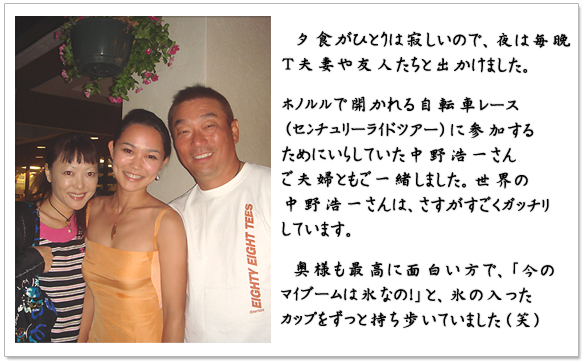 夕食がひとりは寂しいので、夜は毎晩
T夫妻や友人たちと出かけました。
ホノルルで開かれる自転車レース
(センチュリーライドツアー)に参加する
ためにいらしていた中野浩一さん
ご夫婦ともご一緒しました。世界の
中野浩一さんは、さすがすごくガッチリ
しています。
奥様も最高に面白い方で、「今の
マイブームは氷なの!」と、氷の入った
カップをずっと持ち歩いていました(笑)
EIGHTY EIGHT TEES